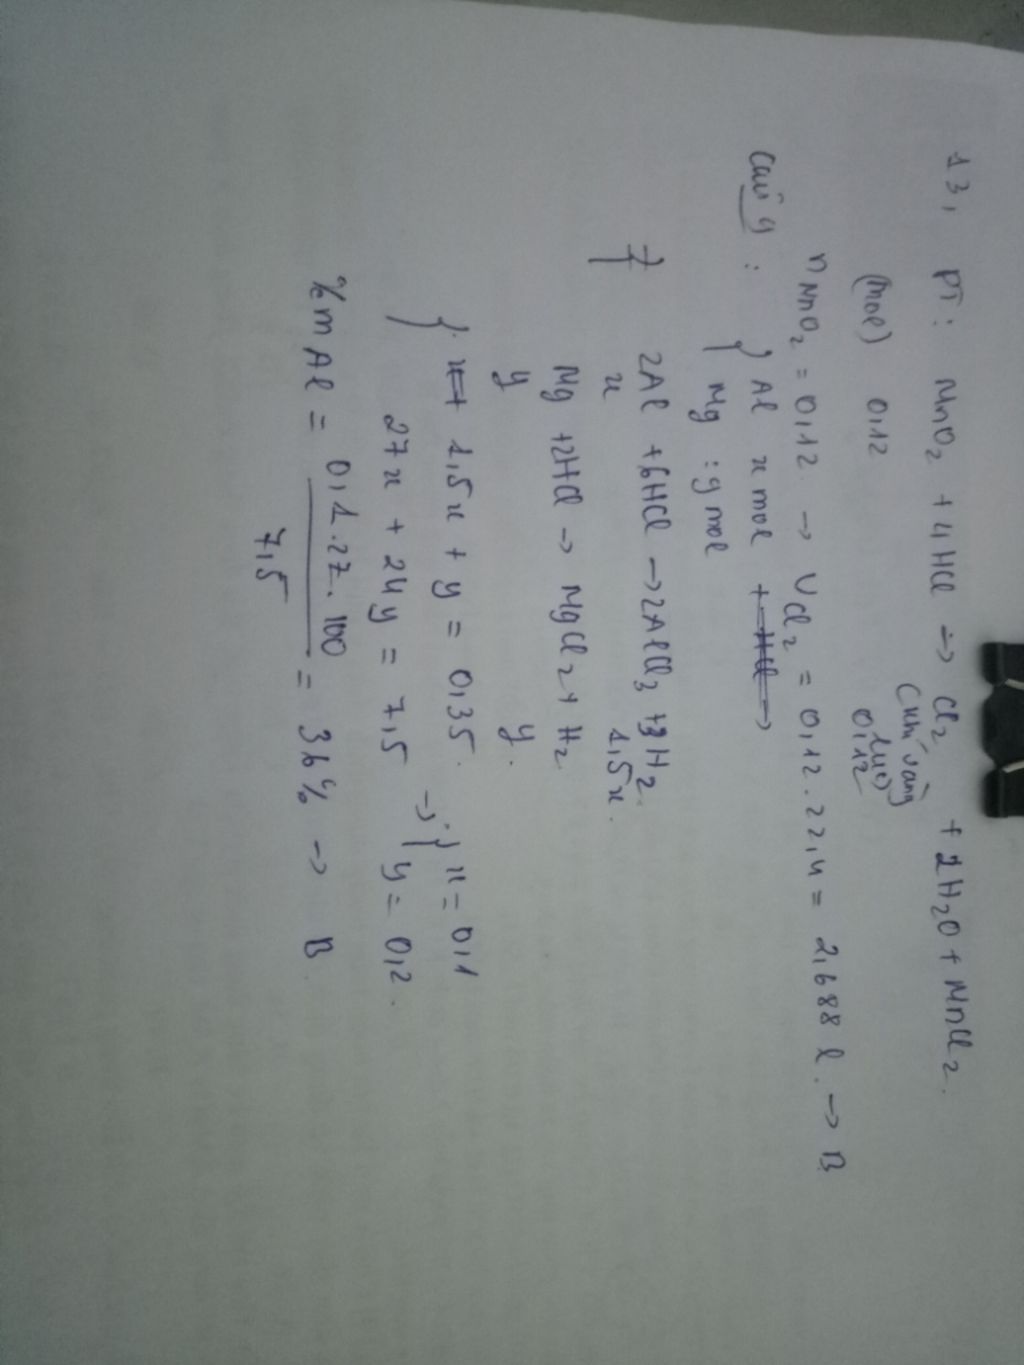 13, PT: MnO2 + 4HCl → Cl2 + 2H2O + MnCl2.
(khí vàng lục)
(mol) 0,12 0,12
nMnO2 = 0,12 → VCl2 = 0,12.22,4 = 2,688 l. → B
Câu 9 : { Al x mol + HCl →
Mg : y mol
2Al + 6HCl → 2AlCl3 + 3H2.
x 1,5x.
Mg + 2HCl → MgCl2 + H2.
y y.
{ x + 1,5x + y = 0,35. → { x = 0,1
27x + 24y = 7,5 y = 0,2.
%mAl = 0,1.27.100 / 7,5 = 36% → B.